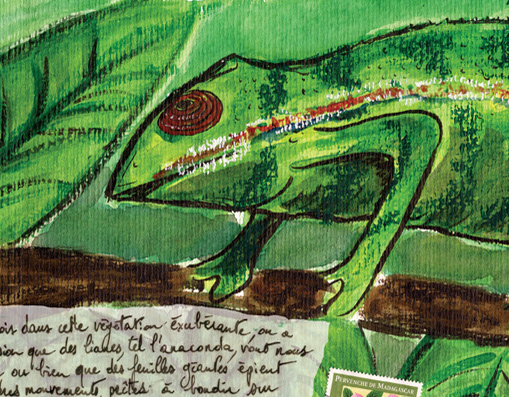 ois dans cette végétation éxubérante on a
sion que des lianes, tel l'anaconda, vont nous
ou bien que des feuilles géantes épient
mouvements, prêtes à bondir sur
PERVENCHE DE MADAGASCAR